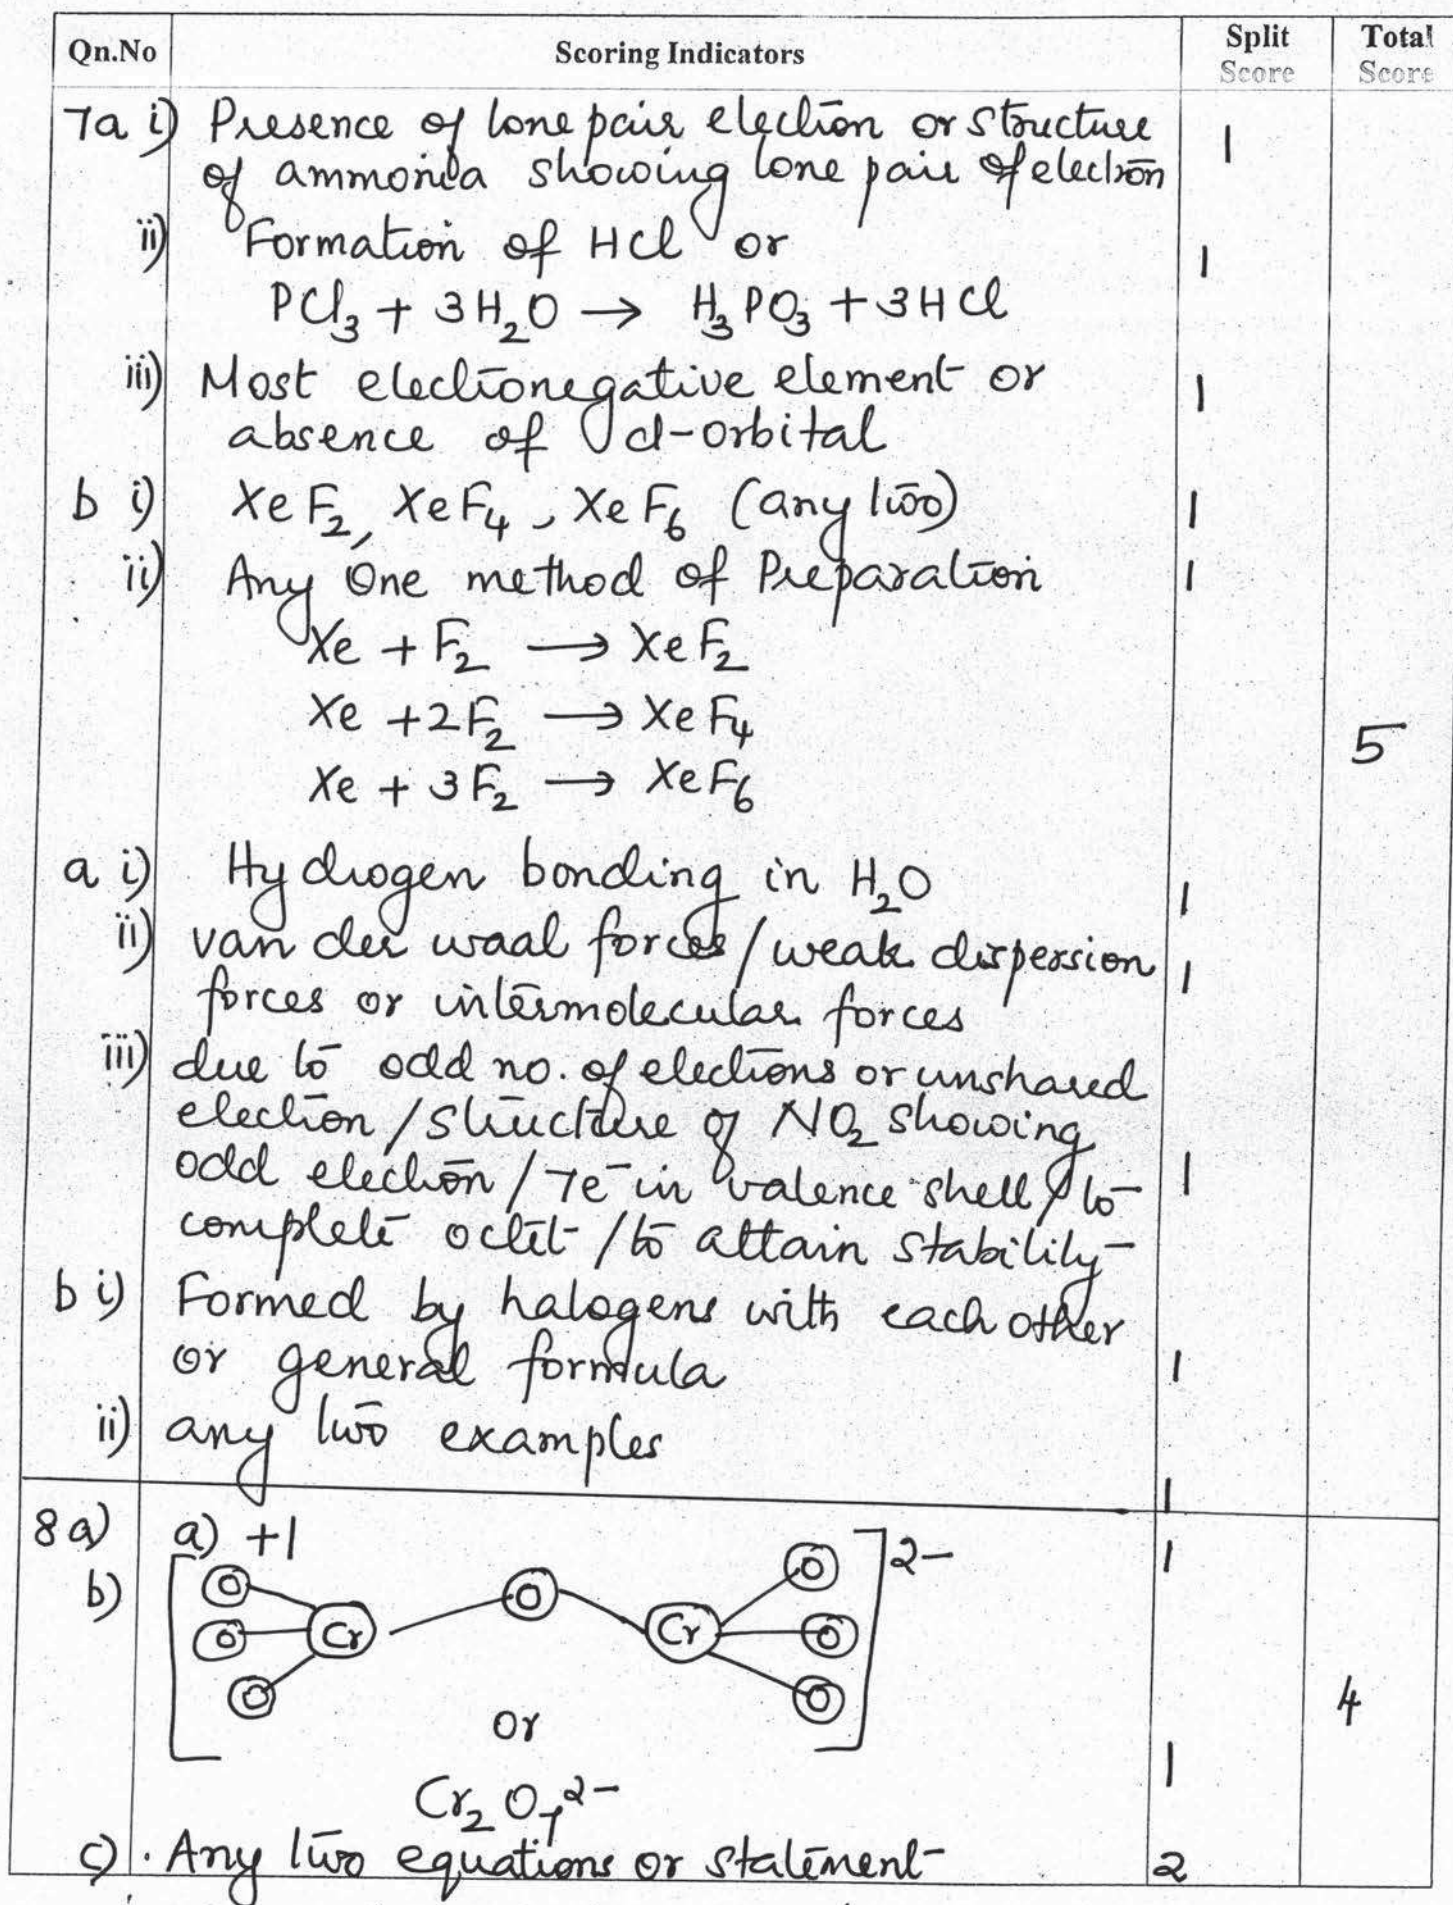 Qn.No Scoring Indicators Split Score Total Score
7a i) Presence of lone pair electron or structure 1
of ammonia showing lone pair of electron
ii) Formation of HCl or 1
PCl₃ + 3H₂O → H₃PO₃ + 3HCl
iii) Most electronegative element or 1
absence of d-orbital
b i) XeF₂, XeF₄, XeF₆ (any two) 1
ii) Any One method of Preparation 1
Xe + F₂ → XeF₂
Xe + 2F₂ → XeF₄
5
Xe + 3F₂ → XeF₆
a i) Hydrogen bonding in H₂O 1
ii) van der waal forces / weak dispersion 1
forces or intermolecular forces
iii) due to odd no. of electrons or unshared
electron / structure of NO₂ showing
odd electron / 7e⁻ in valence shell / to 1
complete octet / to attain stability
b i) Formed by halogens with each other
or general formula 1
ii) any two examples
1
8 a) a) +1 1
b) [O O O Cr O Cr O O O]²⁻
or 4
1
Cr₂O₇²⁻
c) . Any two equations or statement 2